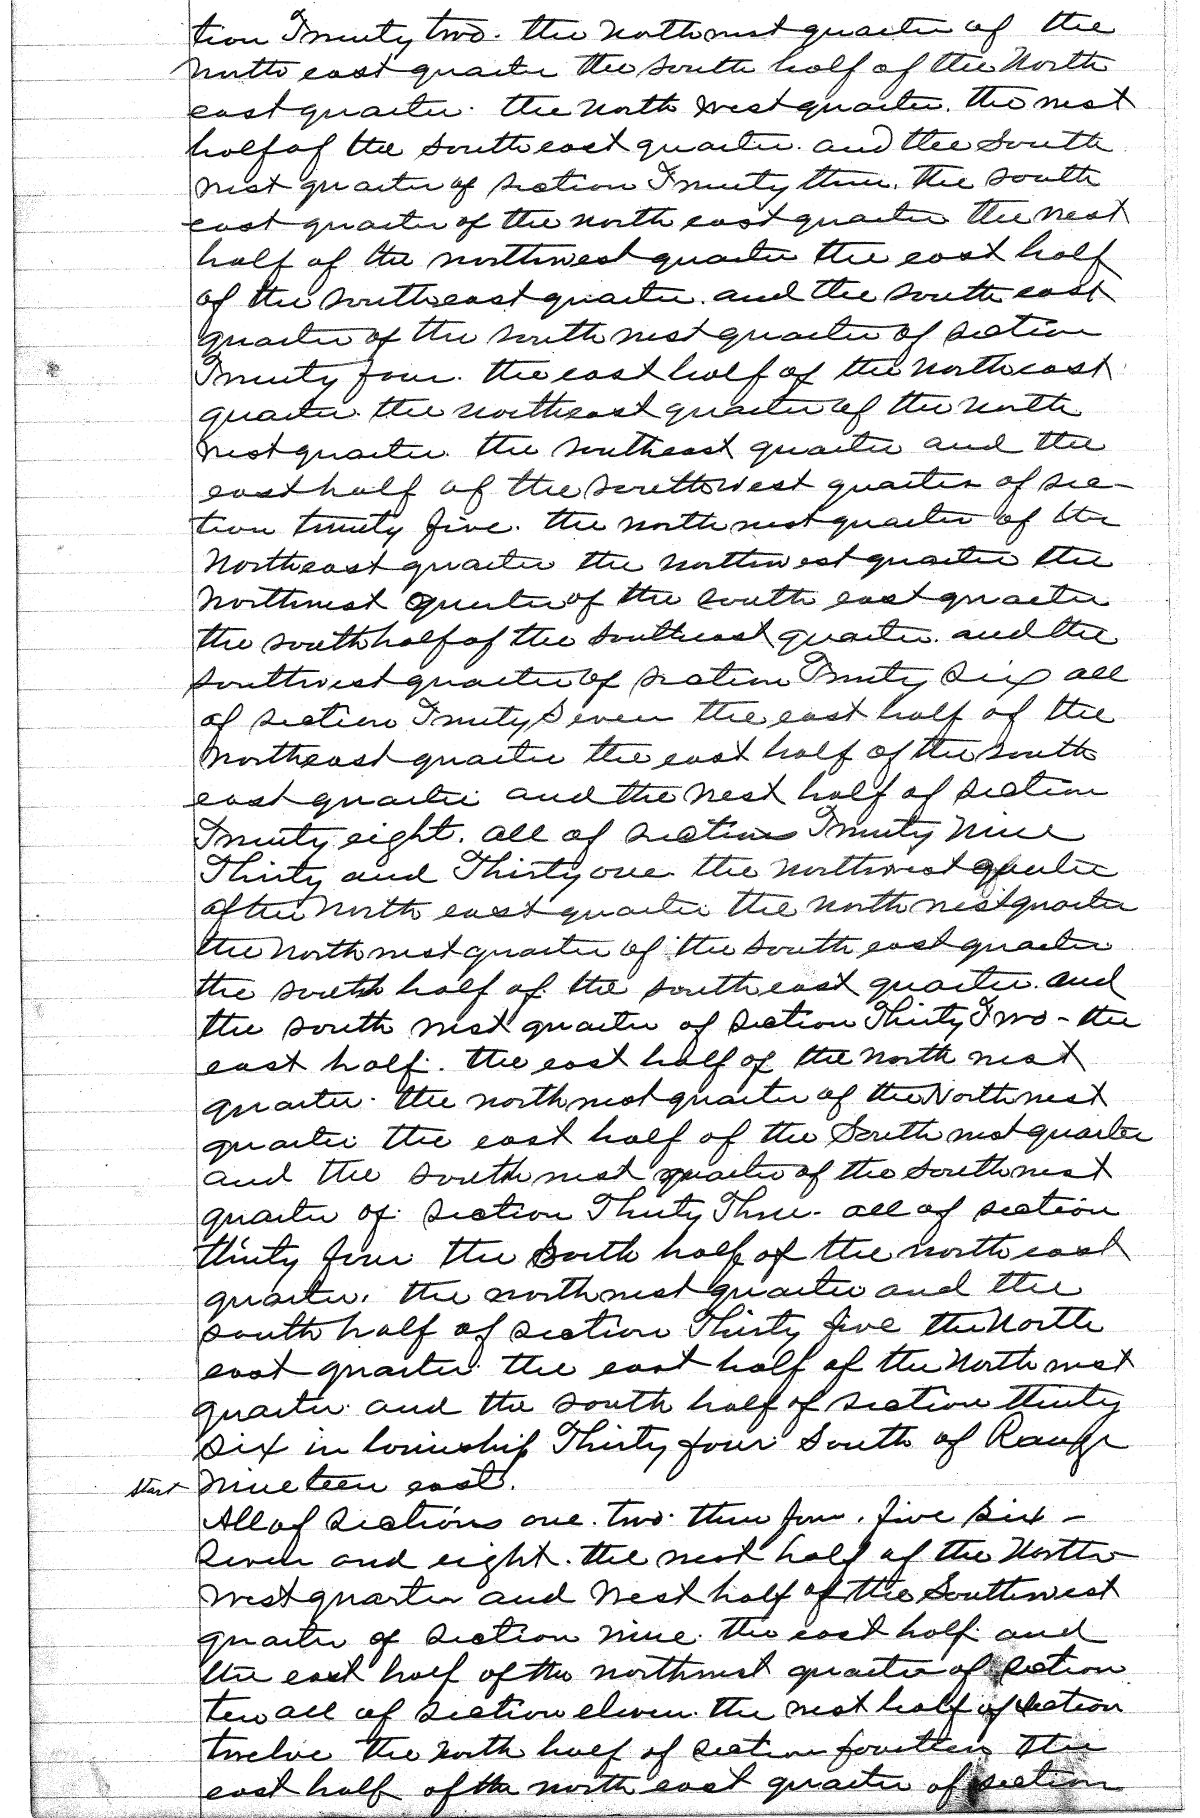 tion Twenty two. the northwest quarter of the
north east quarter the south half of the North
east quarter. the North west quarter. the west
half of the south east quarter. and the South
west quarter of section Twenty three. the south
east quarter of the north east quarter the west
half of the northwest quarter the east half
of the southeast quarter. and the south east
quarter of the south west quarter of section
Twenty four. the east half of the northeast
quarter. the northeast quarter of the north
west quarter. the southeast quarter and the
east half of the southwest quarter of sec-
tion twenty five. the north west quarter of the
Northeast quarter the northwest quarter the
Northwest quarter of the south east quarter
the south half of the southeast quarter. and the
southwest quarter of section Twenty Six all
of section Twenty Seven the east half of the
Northeast quarter the east half of the south
east quarter and the west half of section
Twenty eight. all of sections Twenty Nine
Thirty and Thirty one the northwest quarter
of the North east quarter. the north west quarter
the North west quarter of the south east quarter
the south half of the southeast quarter. and
the south west quarter of section Thirty Two - the
east half. the east half of the north west
quarter. the northwest quarter of the Northwest
quarter. the east half of the South west quarter
and the south west quarter of the southwest
quarter of section Thirty Three. all of section
thirty four the South half of the north east
quarter. the northwest quarter and the
south half of section Thirty five the North
east quarter. the east half of the North west
quarter. and the south half of section thirty
six in township Thirty four South of Range
start Nineteen east.
All of sections one. two. three four. five six -
seven and eight. the west half of the North-
west quarter and West half of the Southwest
quarter of section nine. the east half. and
the east half of the northwest quarter of section
ten all of section eleven. the west half of section
twelve the north half of section fourteen the
east half of the north east quarter of section